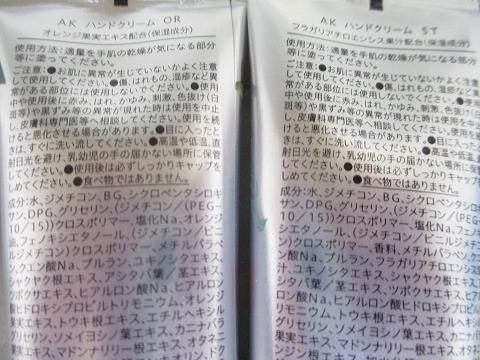 AK ハンドクリーム OR
オレンジ果実エキス配合(保湿成分)
使用方法:適量を手肌の乾燥が気になる部分
等に塗ってください。
ご注意:●お肌に異常が生じていないかよく注意
して使用してください。●傷、はれもの、湿疹など異
常がある部位には使用しないでください。●使用
中や使用後に赤み、はれ、かゆみ、刺激、色抜け(白
斑等)や黒ずみ等の異常が現れた時は使用を中止
し、皮膚科専門医等へ相談してください。使用を続
けると悪化させる場合があります。●目に入ったと
きは、すぐに洗い流してください。●高温や低温、直
射日光を避け、乳幼児の手の届かない場所に保管
してください。●使用後は必ずしっかりキャップを
しめてください。●食べ物ではありません。
成分:水、ジメチコン、BG、シクロペンタシロキ
サン、DPG、グリセリン、(ジメチコン/(PEG-
10/15))クロスポリマー、塩化Na、オレンジ
油、フェノキシエタノール、(ジメチコン/ビニル
ジメチコン)クロスポリマー、メチルパラベ
ン、クエン酸Na、プルラン、ユキノシタエキス、
シャクヤク根エキス、アシタバ葉/茎エキス、
ツボクサエキス、ヒアルロン酸Na、ヒアルロン
酸ヒドロキシプロピルトリモニウム、オレンジ
果実エキス、トウキ根エキス、エチルヘキシル
グリセリン、ソメイヨシノ葉エキス、カニナバラ
果実エキス、マドンナリリー根エキス、オタネニ
AK ハンドクリーム ST
フラガリアチロエンシス果汁配合(保湿成分)
使用方法:適量を手肌の乾燥が気になる部分
等に塗ってください。
ご注意:●お肌に異常が生じていないかよく注意
して使用してください。●傷、はれもの、湿疹など異
常がある部位には使用しないでください。●使用
中や使用後に赤み、はれ、かゆみ、刺激、色抜け(白
斑等)や黒ずみ等の異常が現れた時は使用を中止
し、皮膚科専門医等へ相談してください。使用を続
けると悪化させる場合があります。●目に入ったと
きは、すぐに洗い流してください。●高温や低温、直
射日光を避け、乳幼児の手の届かない場所に保管
してください。●使用後は必ずしっかりキャップを
しめてください。●食べ物ではありません。
成分:水、ジメチコン、BG、シクロペンタシロキ
サン、DPG、グリセリン、(ジメチコン/(PEG-
10/15))クロスポリマー、塩化Na、フェノキ
シエタノール、(ジメチコン/ビニルジメチコ
ン)クロスポリマー、香料、メチルパラベン、クエ
ン酸Na、プルラン、フラガリアチロエンシス果
汁、ユキノシタエキス、シャクヤク根エキス、ア
シタバ葉/茎エキス、ツボクサエキス、ヒアル
ロン酸Na、ヒアルロン酸ヒドロキシプロピルト
リモニウム、トウキ根エキス、エチルヘキシル
グリセリン、ソメイヨシノ葉エキス、カニナバラ
果実エキス、マドンナリリー根エキス、オタネ